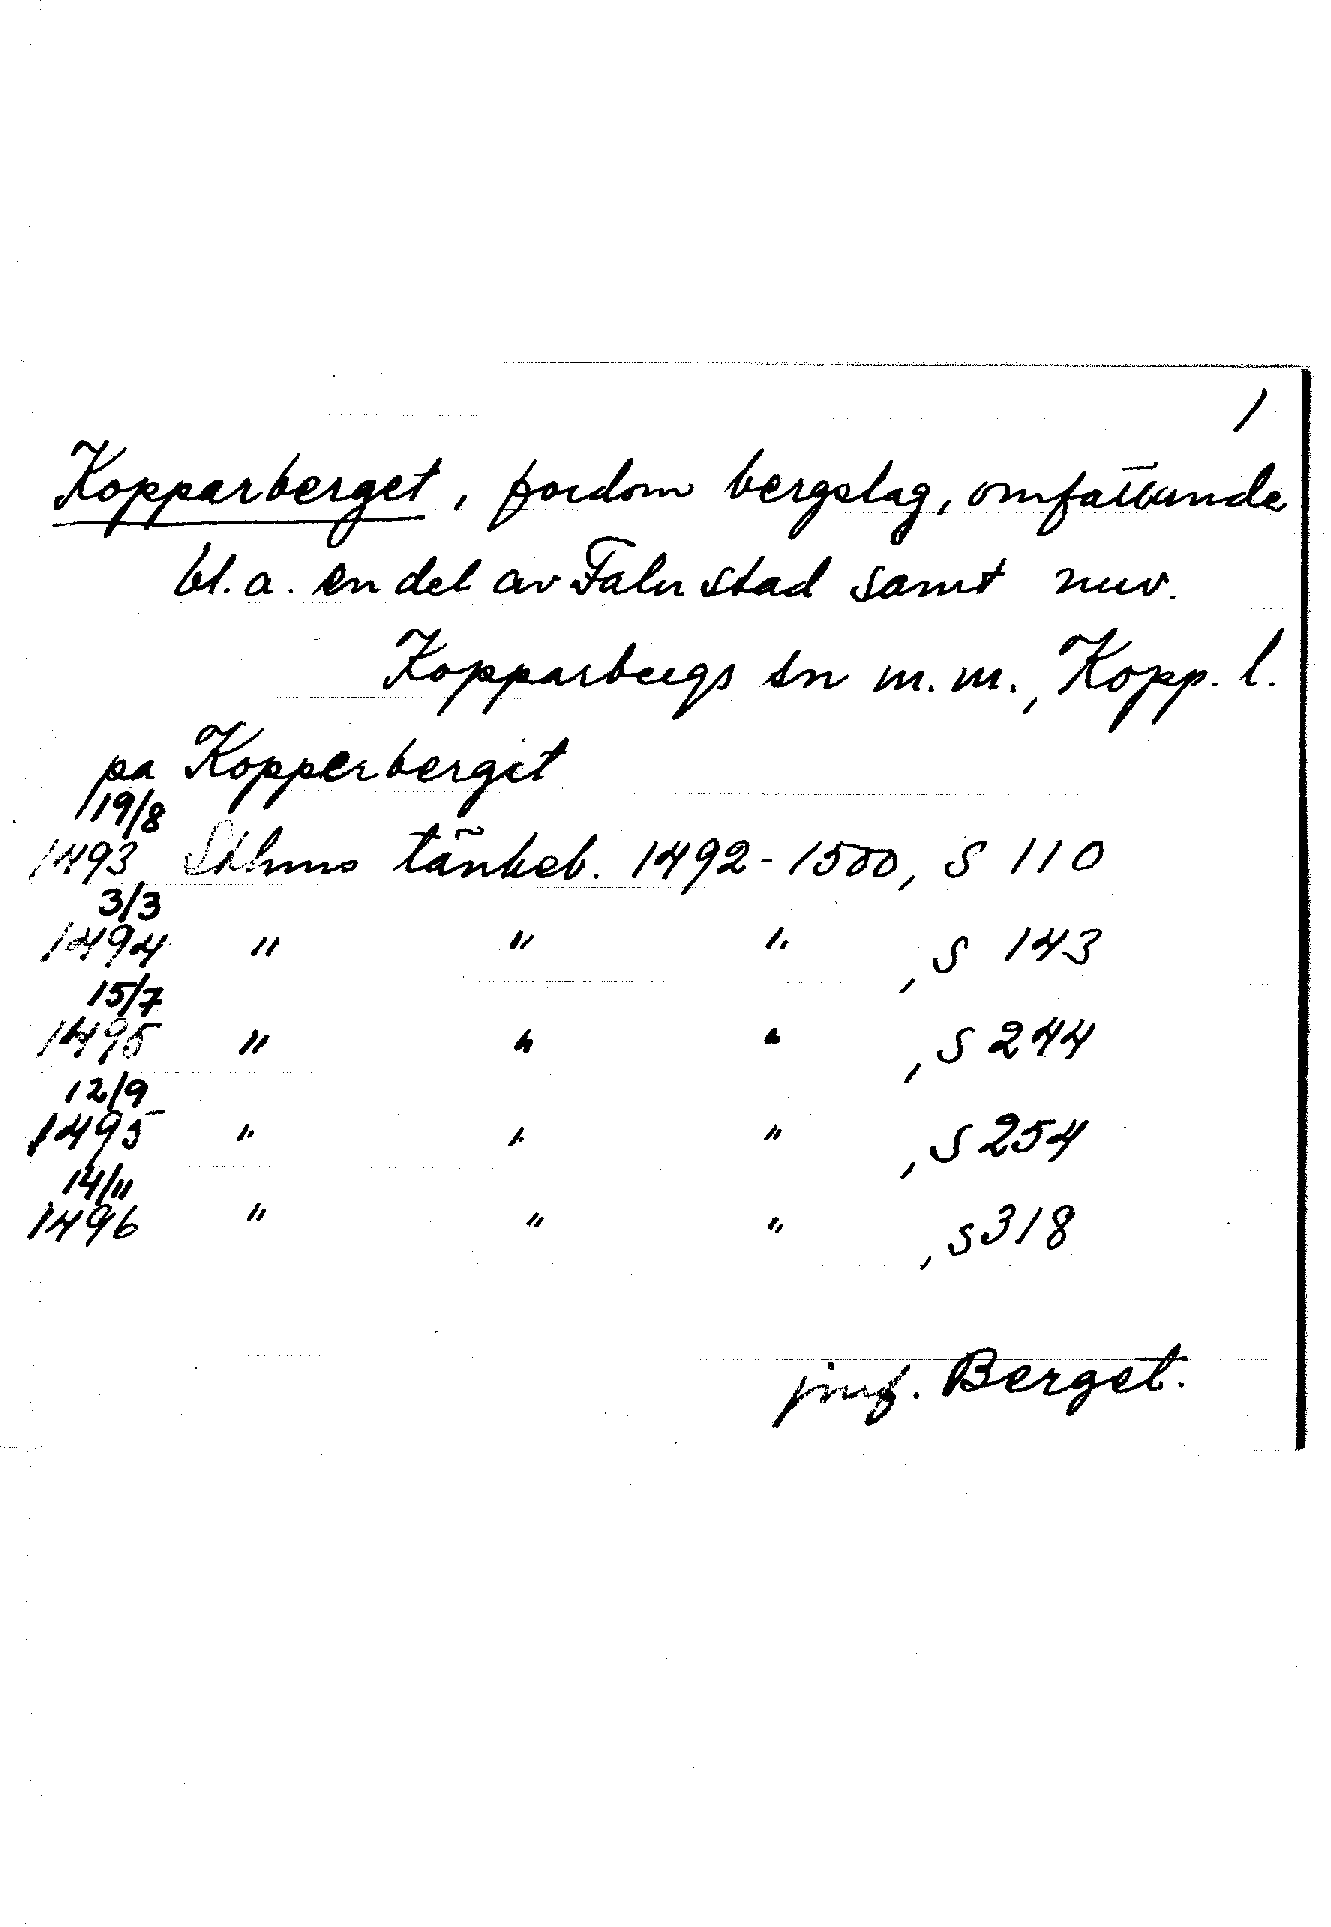 1
Kopparberget, fordom bergslag, omfattande
bl.a. en del av Falu stad samt nuv.
Kopparbergs sn m.m., Kopp. l.
pa Kopperberget
19/8
1493 Sthms tänkeb. 1492-1500, s 110
3/3
1494 " " " , s 143
15/7
1495 " " " , s 244
12/9
1495 " " " , s 254
14/11
1496 " " " , s 318
jmf. Berget.